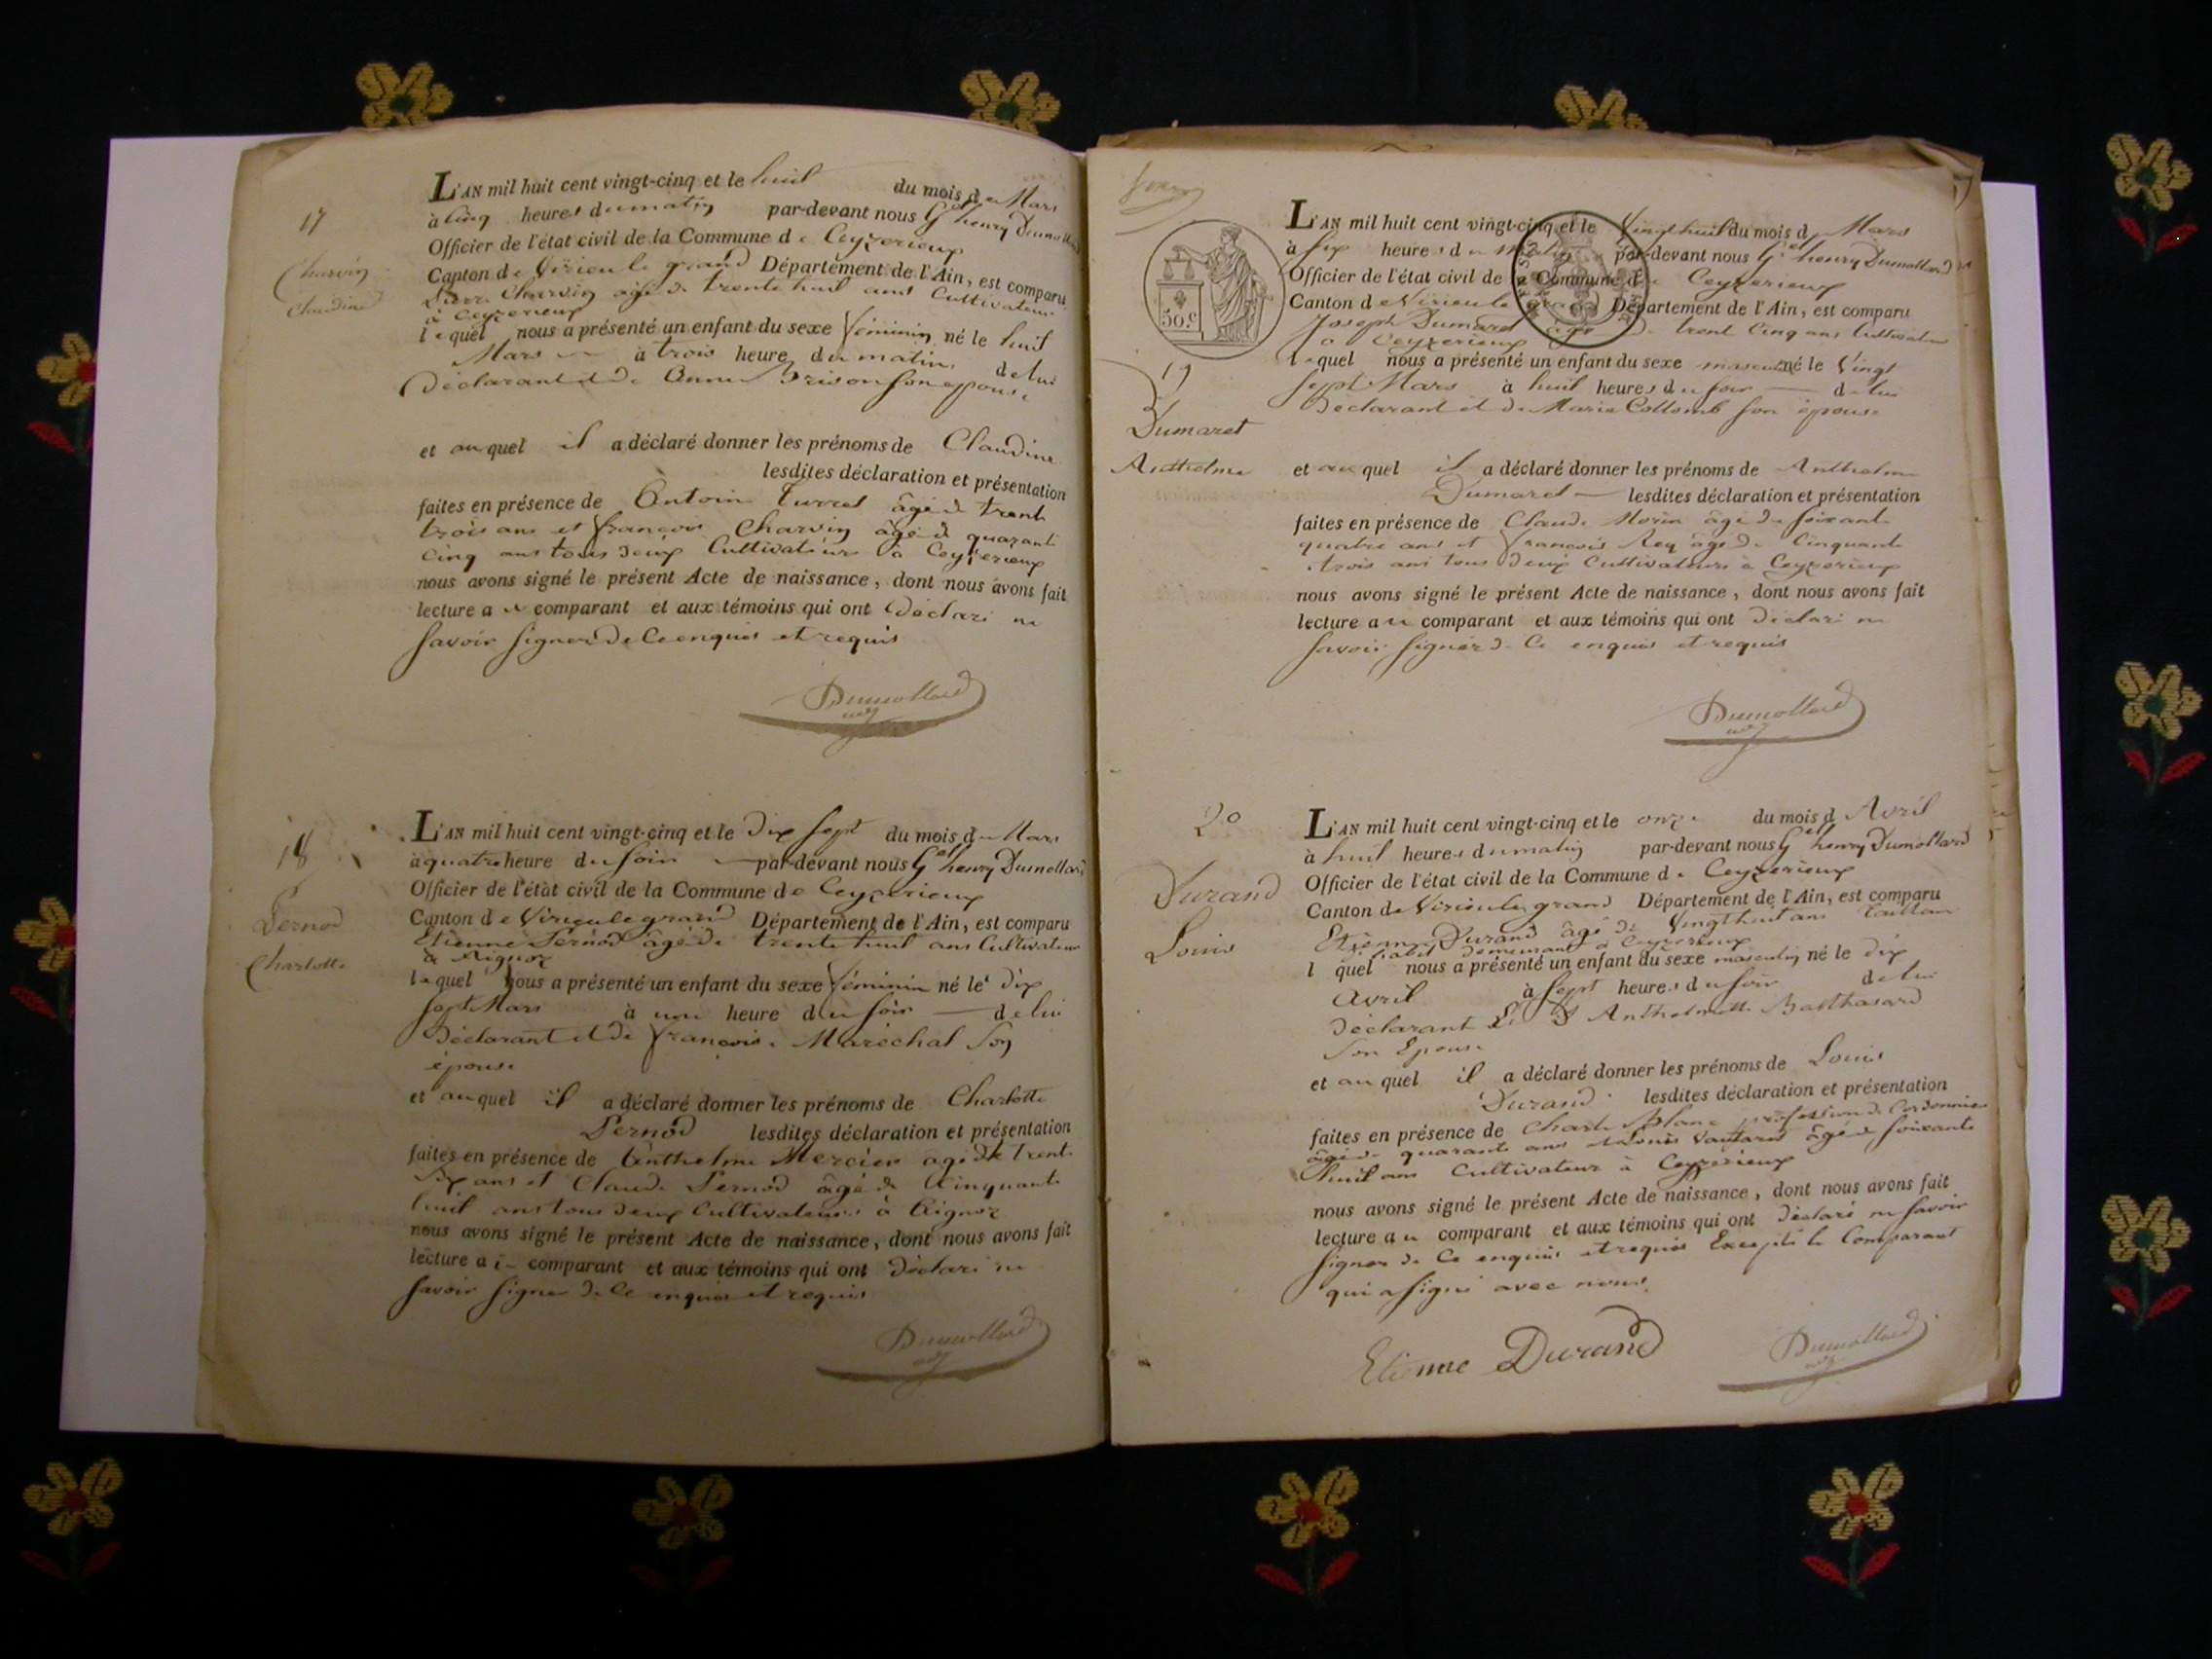 17
Charvin
Claudine
L'AN mil huit cent vingt-cinq et le huit du mois de Mars
à Cinq heures du matin par-devant nous Gel henry Dumollard
Officier de l'état civil de la Commune de Ceyzerieux
Canton de Virieu le grand Département de l'Ain, est comparu
Pierre Charvin âgé de trente huit ans Cultivateur
à Ceyzerieux
lequel nous a présenté un enfant du sexe féminin né le huit
Mars à trois heures du matin de lui
Déclarant et de Anne Brison son épouse
et auquel il a déclaré donner les prénoms de Claudine
lesdites déclaration et présentation
faites en présence de Antoine Turrel âgé de trente
trois ans et françois Charvin âgé de quarante
Cinq ans tous deux Cultivateurs à Ceyzerieux
nous avons signé le présent Acte de naissance, dont nous avons fait
lecture au comparant et aux témoins qui ont Déclaré ne
Savoir Signer de Ce enquis et requis
Dumollard
18
Pernod
Charlotte
L'AN mil huit cent vingt-cinq et le Dix Sept du mois de Mars
à quatre heure du Soir par-devant nous Gel henry Dumollard
Officier de l'état civil de la Commune de Ceyzerieux
Canton de Virieu le grand Département de l'Ain, est comparu
Etienne Pernod âgé de trente huit ans Cultivateur
à Aignoz
lequel nous a présenté un enfant du sexe féminin né le Dix
Sept Mars à une heure du Soir de lui
Déclarant et de françoise Maréchal Son
épouse
et auquel il a déclaré donner les prénoms de Charlotte
Pernod lesdites déclaration et présentation
faites en présence de Anthelme Mercier âgé de trente
Six ans et Claude Pernod âgé de Cinquante
huit ans tous deux Cultivateurs à Aignoz
nous avons signé le présent Acte de naissance, dont nous avons fait
lecture au comparant et aux témoins qui ont Déclaré ne
Savoir Signer de Ce enquis et requis
Dumollard
50.c
19
Dumaret
Anthelme
L'AN mil huit cent vingt-cinq et le Vingt huit du mois de Mars
à Six heures du matin par-devant nous Gel henry Dumollard
Officier de l'état civil de la Commune de Ceyzerieux
Canton de Virieu le grand Département de l'Ain, est comparu
Joseph Dumaret âgé de trente Cinq ans Cultivateur
à Ceyzerieux
lequel nous a présenté un enfant du sexe masculin né le Vingt
Sept Mars à huit heures du Soir de lui
Déclarant et de Marie Collomb Son épouse
et auquel il a déclaré donner les prénoms de Anthelme
Dumaret lesdites déclaration et présentation
faites en présence de Claude Morin âgé de Soixante
quatre ans et françois Rey âgé de Cinquante
trois ans tous Deux Cultivateurs à Ceyzerieux
nous avons signé le présent Acte de naissance, dont nous avons fait
lecture au comparant et aux témoins qui ont Déclaré ne
Savoir Signer de Ce enquis et requis
Dumollard
20
Durand
Louis
L'AN mil huit cent vingt-cinq et le onze du mois d Avril
à huit heures du matin par-devant nous Gel henry Dumollard
Officier de l'état civil de la Commune de Ceyzerieux
Canton de Virieu le grand Département de l'Ain, est comparu
Etienne Durand âgé de Vingt huit ans Tailleur
d'habit demeurant à Ceyzerieux
l quel nous a présenté un enfant du sexe masculin né le dix
Avril à Sept heures du Soir de lui
Déclarant Et D Anthelmette Balthasard
Son Epouse
et auquel il a déclaré donner les prénoms de Louis
Durand lesdites déclaration et présentation
faites en présence de Charle Blanc profession de Cordonnier
âgé de quarante ans et âgé de Soixante
huit ans Cultivateur à Ceyzerieux
nous avons signé le présent Acte de naissance, dont nous avons fait
lecture au comparant et aux témoins qui ont Déclaré ne Savoir
Signer de Ce enquis et requis Excepté le Comparant
qui a Signé avec nous.
Etienne Durand
Dumollard